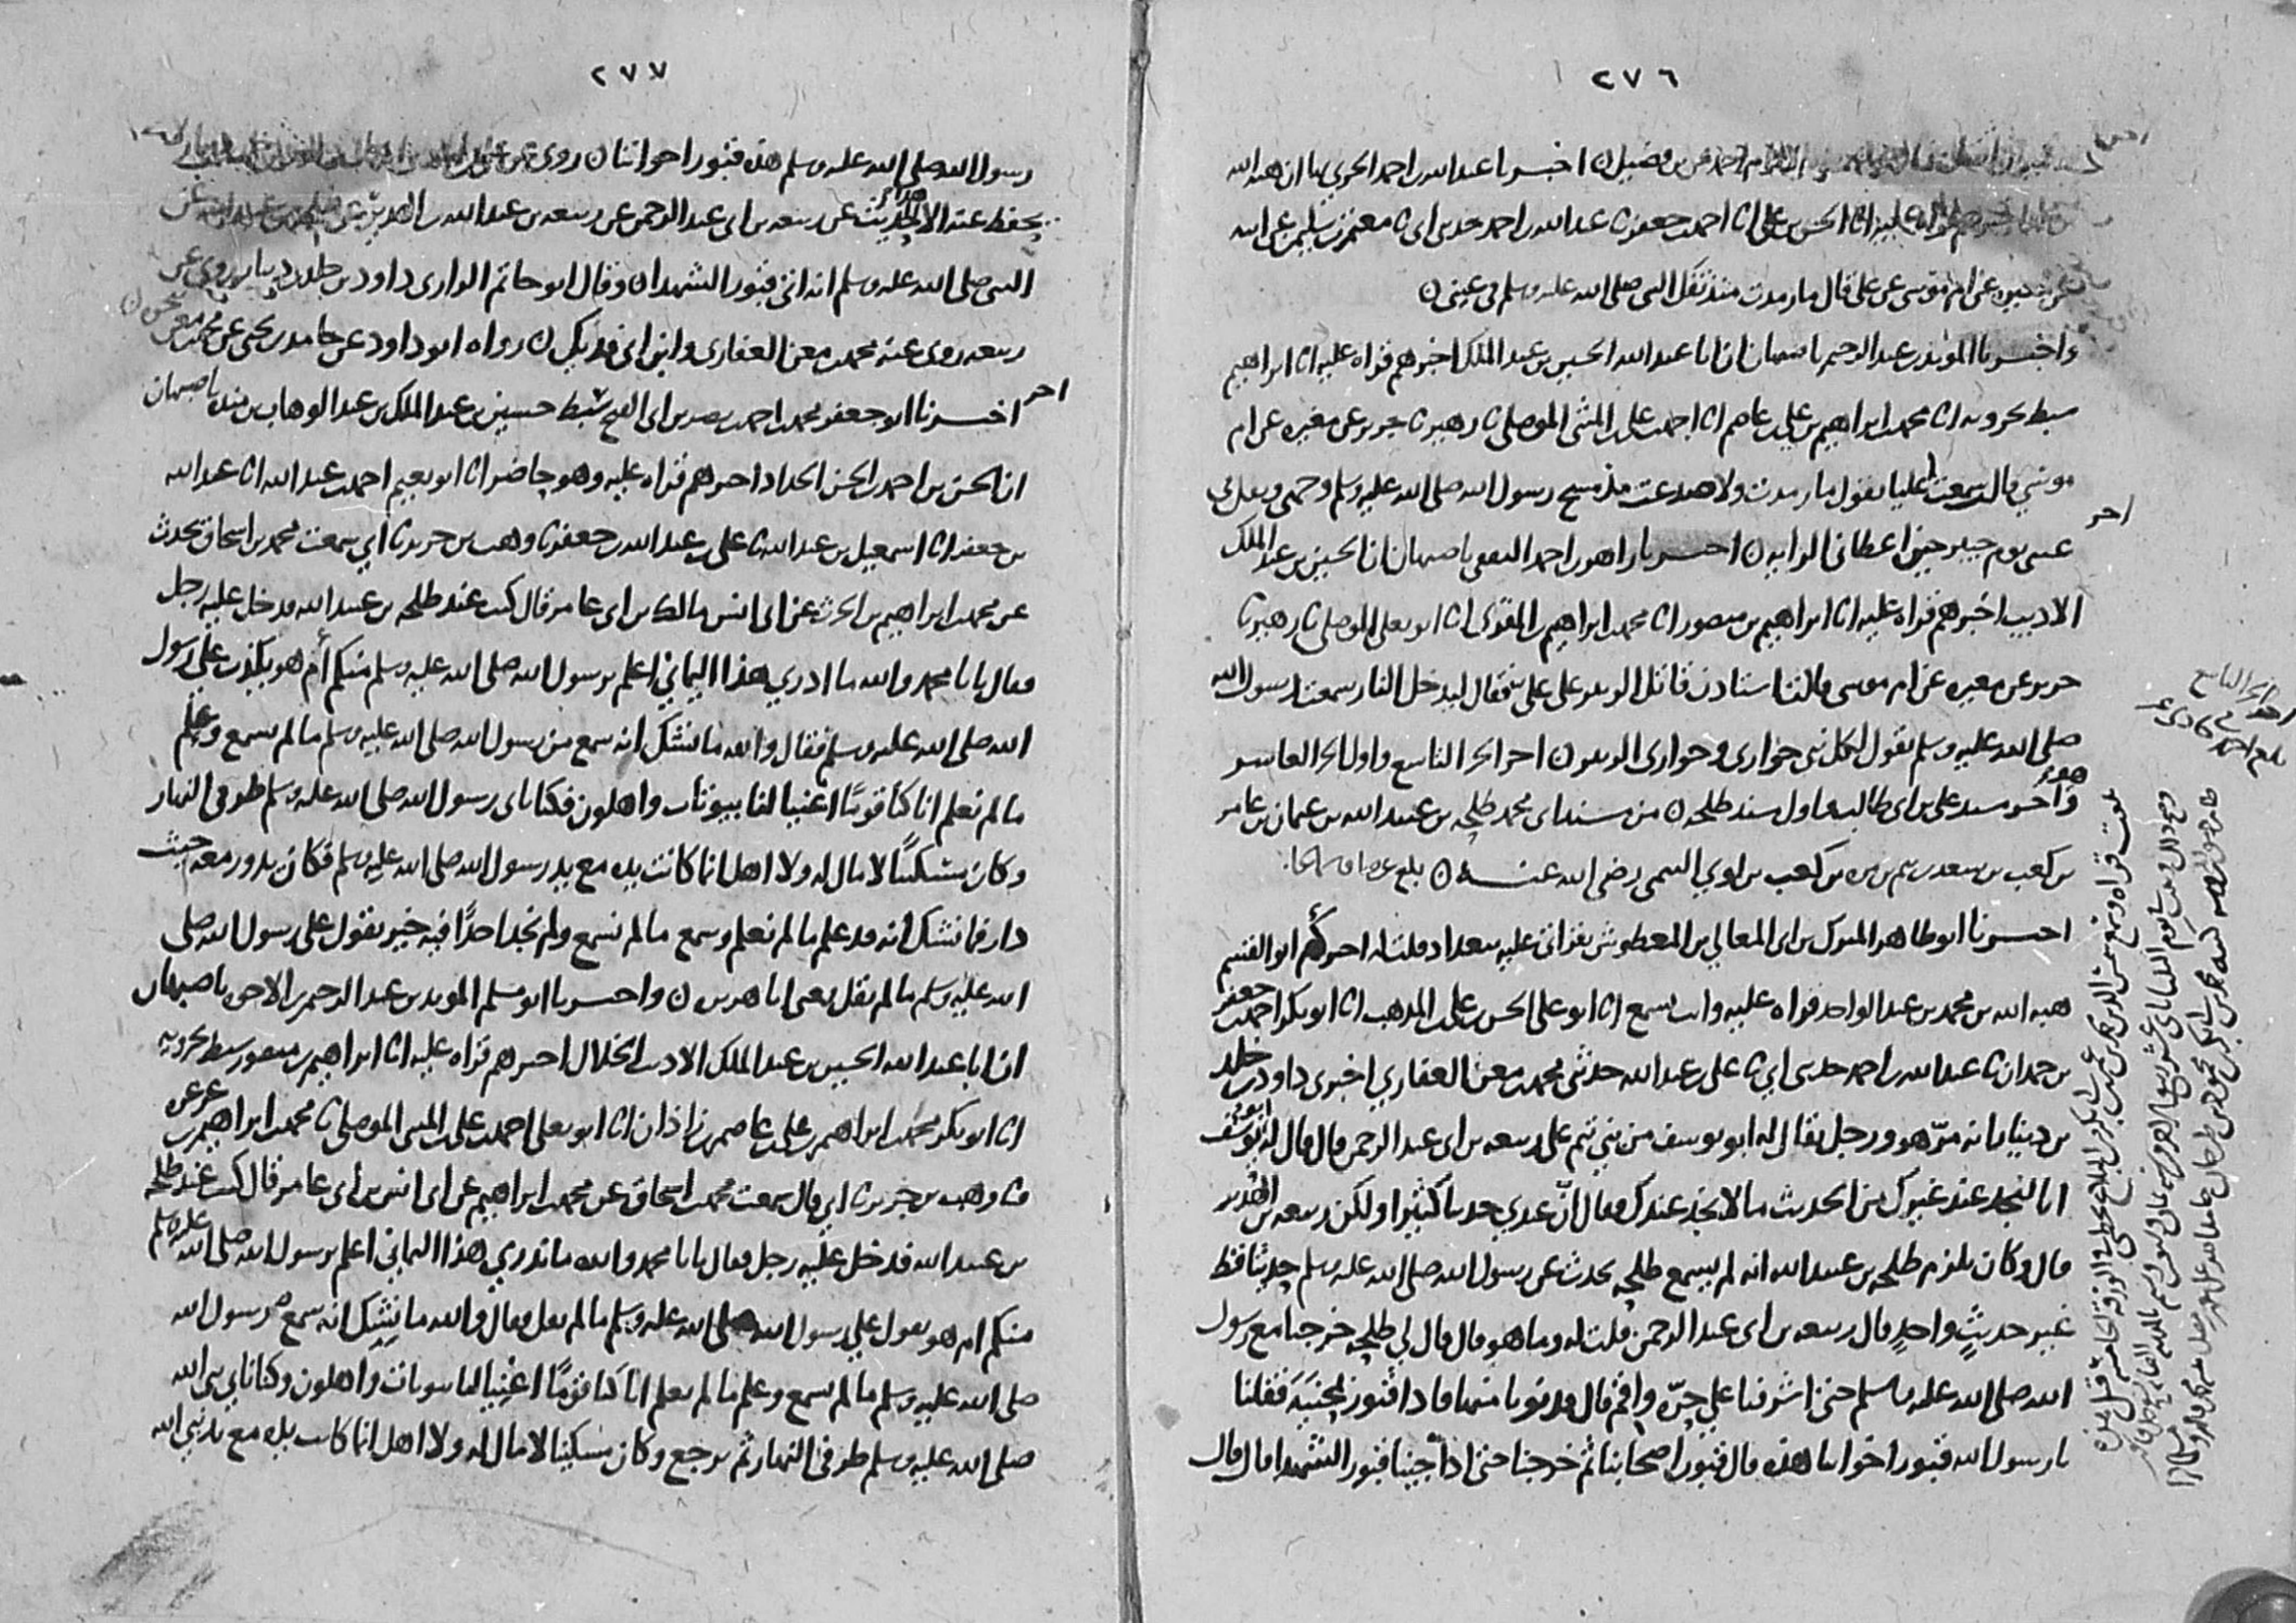 ٢٧٦
اخبرنا عبد الله بن احمد الحربي بها ان هبه الله
عليه انا الحسن بن علي انا احمد بن جعفر نا عبد الله بن احمد حدثني ابي نا معتمر بن سليمن عن ابيه
عن مغيره عن ام موسى عن علي قال ما رمدت منذ تفل النبي صلى الله عليه وسلم في عيني ن
واخبرنا المؤيد بن عبد الرحيم باصبهان ان ابا عبد الله الحسين بن عبد الملك اخبرهم قراه عليه انا ابراهيم
سبط بحرويه انا محمد بن ابراهيم بن علي بن عاصم انا احمد بن علي بن المثنى الموصلي نا زهير نا جرير عن مغيره عن ام
موسى قالت سمعت عليا يقول ما رمدت ولا صدعت منذ مسح رسول الله صلى الله عليه وسلم وجهي وتفل في
عيني يوم خيبر حين اعطاني الرايه ن اخبرنا زاهر بن احمد الثقفي باصبهان ان الحسين بن عبد الملك
الاديب اخبرهم قراه عليه انا ابراهيم بن منصور انا محمد بن ابراهيم بن المقرئ انا ابو يعلى الموصلي نا زهير نا
جرير عن مغيره عن ام موسى قالت استاذن قاتل الزبير على علي فقال ليدخل النار سمعت رسول الله
صلى الله عليه وسلم يقول لكل نبي حواري وحواري الزبير ن اخر الجز التاسع واول الجز العاشر
وهو اخر مسند علي بن ابي طالب واول مسند طلحه ن من مسند ابي محمد طلحه بن عبيد الله بن عثمان بن عامر
بن كعب بن سعد بن تيم بن مره بن كعب بن لوي التيمي رضي الله عنه ن
اخبرنا ابو طاهر المبارك بن ابي المعالي بن المعطوش بقراتي عليه ببغداد قلت له اخبركم ابو القسم
هبه الله بن محمد بن عبد الواحد قراه عليه وانت تسمع انا ابو علي الحسن بن علي بن المذهب انا ابو بكر احمد بن جعفر
بن حمدان نا عبد الله بن احمد حدثني ابي نا علي بن عبد الله حدثني محمد بن معن الغفاري اخبرني داود بن خلد
بن دينار انه مر هو ورجل يقال له ابو يوسف من بني تيم على ربيعه بن ابي عبد الرحمن قال قال له ابو يوسف
انا لنجد عند غيرك من الحديث ما لا نجد عندك فقال ان عندي حديثا كثيرا ولكن ربيعه بن الهدير
قال وكان يلزم طلحه بن عبيد الله انه لم يسمع طلحه يحدث عن رسول الله صلى الله عليه وسلم حديثا قط
غير حديث واحد قال ربيعه بن ابي عبد الرحمن قلت له وما هو قال قال لي طلحه خرجنا مع رسول
الله صلى الله عليه وسلم حتى اشرفنا على حره واقم قال فدنونا منها فاذا قبور بمحنيه فقلنا
يا رسول الله قبور اخواننا هذه قال قبور اصحابنا ثم خرجنا حتى اذا جينا قبور الشهدا قال قال
٢٧٧
رسول الله صلى الله عليه وسلم هذه قبور اخواننا ن روي عن علي
يحفظ عنه الا هذا الحديث عن ربيعه بن ابي عبد الرحمن عن ربيعه بن عبد الله بن الهدير عن
النبي صلى الله عليه وسلم انه اتى قبور الشهدا ن وقال ابو حاتم الرازي داود بن خلد بن دينار روى عن
ربيعه روى عنه محمد بن معن الغفاري وابن ابي فديك ن رواه ابو داود عن حامد بن يحيى عن محمد بن معن
اخبرنا ابو جعفر محمد بن احمد بن نصر بن ابي الفتح سبط حسين بن عبد الملك بن عبد الوهاب بن منده باصبهان
ان الحسن بن احمد بن الحسن الحداد اخبرهم قراه عليه وهو حاضر انا ابو نعيم احمد بن عبد الله انا عبد الله
بن جعفر انا اسمعيل بن عبد الله نا علي بن عبد الله بن جعفر نا وهب بن جرير نا ابي سمعت محمد بن اسحاق يحدث
عن محمد بن ابراهيم بن الحرث عن ابي انس مالك بن ابي عامر قال كنت عند طلحه بن عبيد الله فدخل عليه رجل
فقال يا با محمد والله ما ادري هذا اليماني اعلم برسول الله صلى الله عليه وسلم منكم أم هو يكذب على رسول
الله صلى الله عليه وسلم فقال والله ما نشك انه سمع من رسول الله صلى الله عليه وسلم ما لم نسمع وعلم
ما لم نعلم انا كنا قوما اغنيا لنا بيوتات واهلون فكنا ناتي رسول الله صلى الله عليه وسلم طرفي النهار
وكان مسكينا لا مال له ولا اهل انما كانت يده مع يد رسول الله صلى الله عليه وسلم فكان يدور معه حيث
دار فما نشك انه قد علم ما لم نعلم وسمع ما لم نسمع ولم نجد احدا فيه خير يقول على رسول الله صلى
الله عليه وسلم ما لم يقل يعني ابا هريره ن واخبرنا ابو مسلم المويد بن عبد الرحيم بن الاخوه باصبهان
ان ابا عبد الله الحسين بن عبد الملك الاديب الخلال اخبرهم قراه عليه انا ابراهيم بن منصور سبط بحرويه
انا ابو بكر محمد بن ابراهيم بن علي بن عاصم بن زاذان انا ابو يعلى احمد بن علي بن المثنى الموصلي نا محمد بن ابراهيم بن عرعره
نا وهب بن جرير نا ابي قال سمعت محمد بن اسحاق عن محمد بن ابراهيم عن ابي انس بن ابي عامر قال كنت عند طلحه
بن عبيد الله فدخل عليه رجل فقال يا با محمد والله ما ندري هذا اليماني اعلم برسول الله صلى الله عليه وسلم
منكم ام هو يقول على رسول الله صلى الله عليه وسلم ما لم يقل فقال والله ما نشك انه سمع من رسول الله
صلى الله عليه وسلم ما لم نسمع وعلم ما لم نعلم انا كنا قوما اغنيا لنا بيوتات واهلون وكنا ناتي نبي الله
صلى الله عليه وسلم طرفي النهار ثم نرجع وكان مسكينا لا مال له ولا اهل انما كانت يده مع يد نبي الله